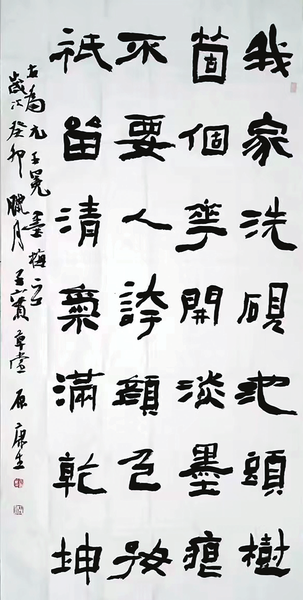 我家洗硯池頭樹
箇個華開淡墨痕
不要人誇顏色好
祇留清氣滿乾坤
右為元王冕墨梅
歲次癸卯臘月草堂原康生